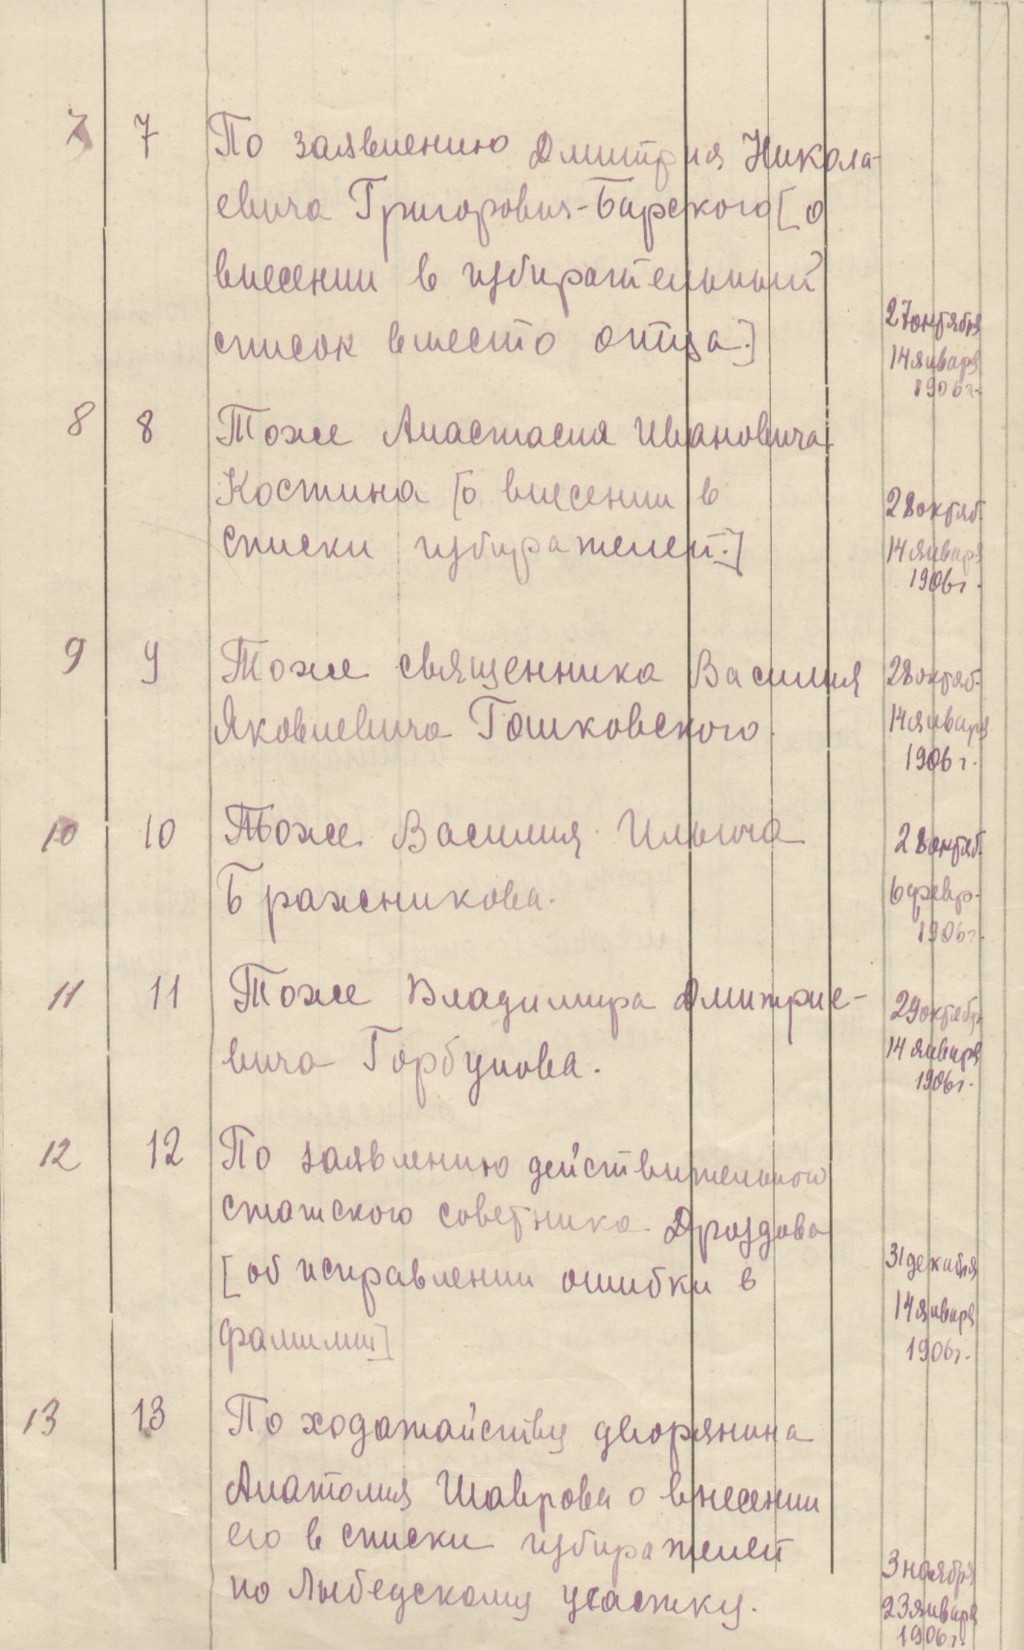 7 7 По заявлению Дмитрия Никола-
евича Григорович-Барского [о
внесении в избирательный
27 октября
список вместо отца.]
14 января
1906 г.
8 8 Тоже Анастасия Ивановича
Костина [о внесении в
28 октяб.
списки избирателей.]
14 января
1906 г.
9 9 Тоже священника Василия
28 октяб.
Яковлевича Гошковского.
14 января
1906 г.
10 10 Тоже Василия Ильича
28 октяб.
Бражникова.
6 февр.
1906 г.
11 11 Тоже Владимира Дмитрие-
29 октябр.
вича Горбунова.
14 января
1906 г.
12 12 По заявлению действительного
статского советника Дроздова
[об исправлении ошибки в
31 декабря
фамилии]
14 января
1906 г.
13 13 По ходатайству дворянина
Анатолия Шаврова о внесении
его в списки избирателей
3 ноября
по Лыбедскому участку.
23 января
1906 г.